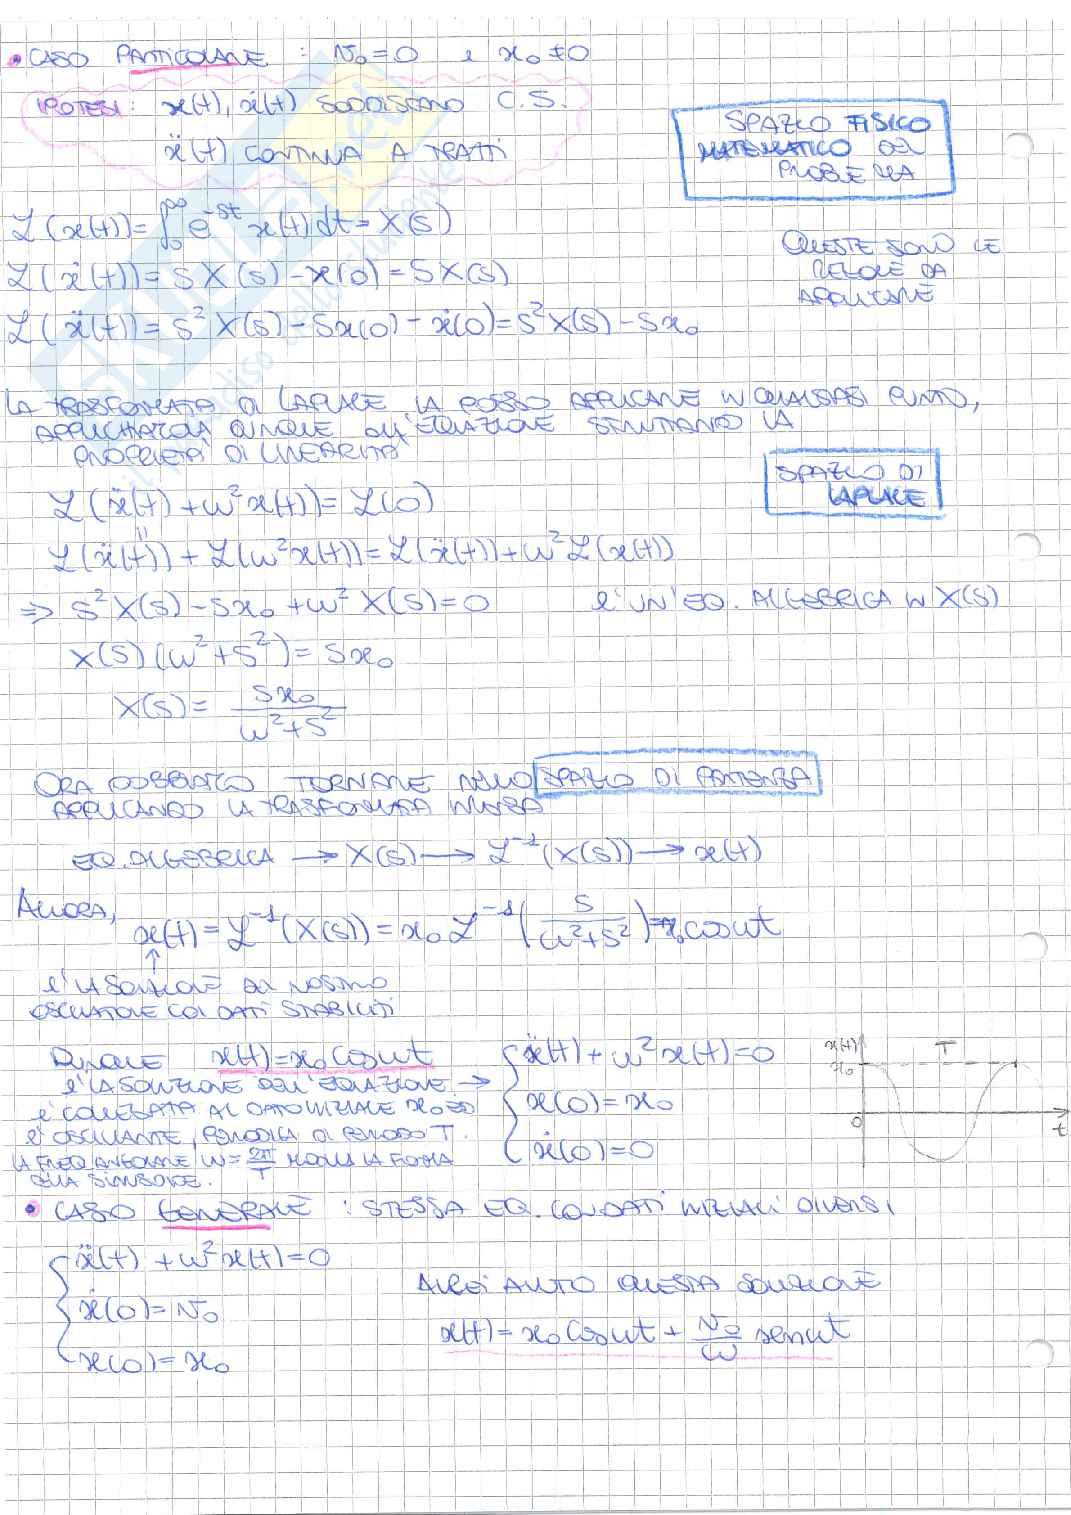 • CASO PARTICOLARE : v₀=0 e x₀≠0
IPOTESI: x(t), ẋ(t) SODDISFANO C.S.
ẍ(t) CONTINUA A TRATTI
SPAZIO FISICO
MATEMATICO DEL
PROBLEMA
ℒ(x(t))=∫₀^∞ e^-st x(t)dt=X(s)
ℒ(ẋ(t))=sX(s)-x(0)=sX(s)
ℒ(ẍ(t))=s²X(s)-sx(0)-ẋ(0)=s²X(s)-sx₀
QUESTE SONO LE
REGOLE DA
APPLICARE
LA TRASFORMATA DI LAPLACE LA POSSO APPLICARE IN QUALSIASI PUNTO,
APPLICHIAMOLA DUNQUE ALL'EQUAZIONE SFRUTTANDO LA
PROPRIETÀ DI LINEARITÀ
SPAZIO DI
LAPLACE
ℒ(ẍ(t)+ω²x(t))=ℒ(0)
ℒ(ẍ(t))+ℒ(ω²x(t))=ℒ(ẍ(t))+ω²ℒ(x(t))
⇒ s²X(s)-sx₀+ω²X(s)=0 È UN'EQ. ALGEBRICA IN X(s)
X(s)(ω²+s²)=sx₀
X(s)= sx₀/(ω²+s²)
ORA DOBBIAMO TORNARE NELLO SPAZIO DI PARTENZA
APPLICANDO LA TRASFORMATA INVERSA
EQ. ALGEBRICA → X(s) → ℒ⁻¹(X(s)) → x(t)
ALLORA,
x(t)=ℒ⁻¹(X(s))=x₀ℒ⁻¹(s/(ω²+s²))=x₀cosωt
↑
È LA SOLUZIONE DEL NOSTRO
OSCILLATORE COI DATI STABILITI
DUNQUE x(t)=x₀cosωt
È LA SOLUZIONE DELL'EQUAZIONE →
È CORRELATA AL DATO INIZIALE x₀ ED
È OSCILLANTE, PERIODICA DI PERIODO T.
LA FREQ ANGOLARE ω=2π/T
DELLA SINUSOIDE.
ẍ(t)+ω²x(t)=0
x(0)=x₀
ẋ(0)=0
x(t)
x₀
T
0
t
• CASO GENERALE : STESSA EQ. CON DATI INIZIALI DIVERSI
ẍ(t)+ω²x(t)=0
ẋ(0)=v₀
x(0)=x₀
AVREI AVUTO QUESTA SOLUZIONE
x(t)=x₀cosωt+v₀/ω senωt